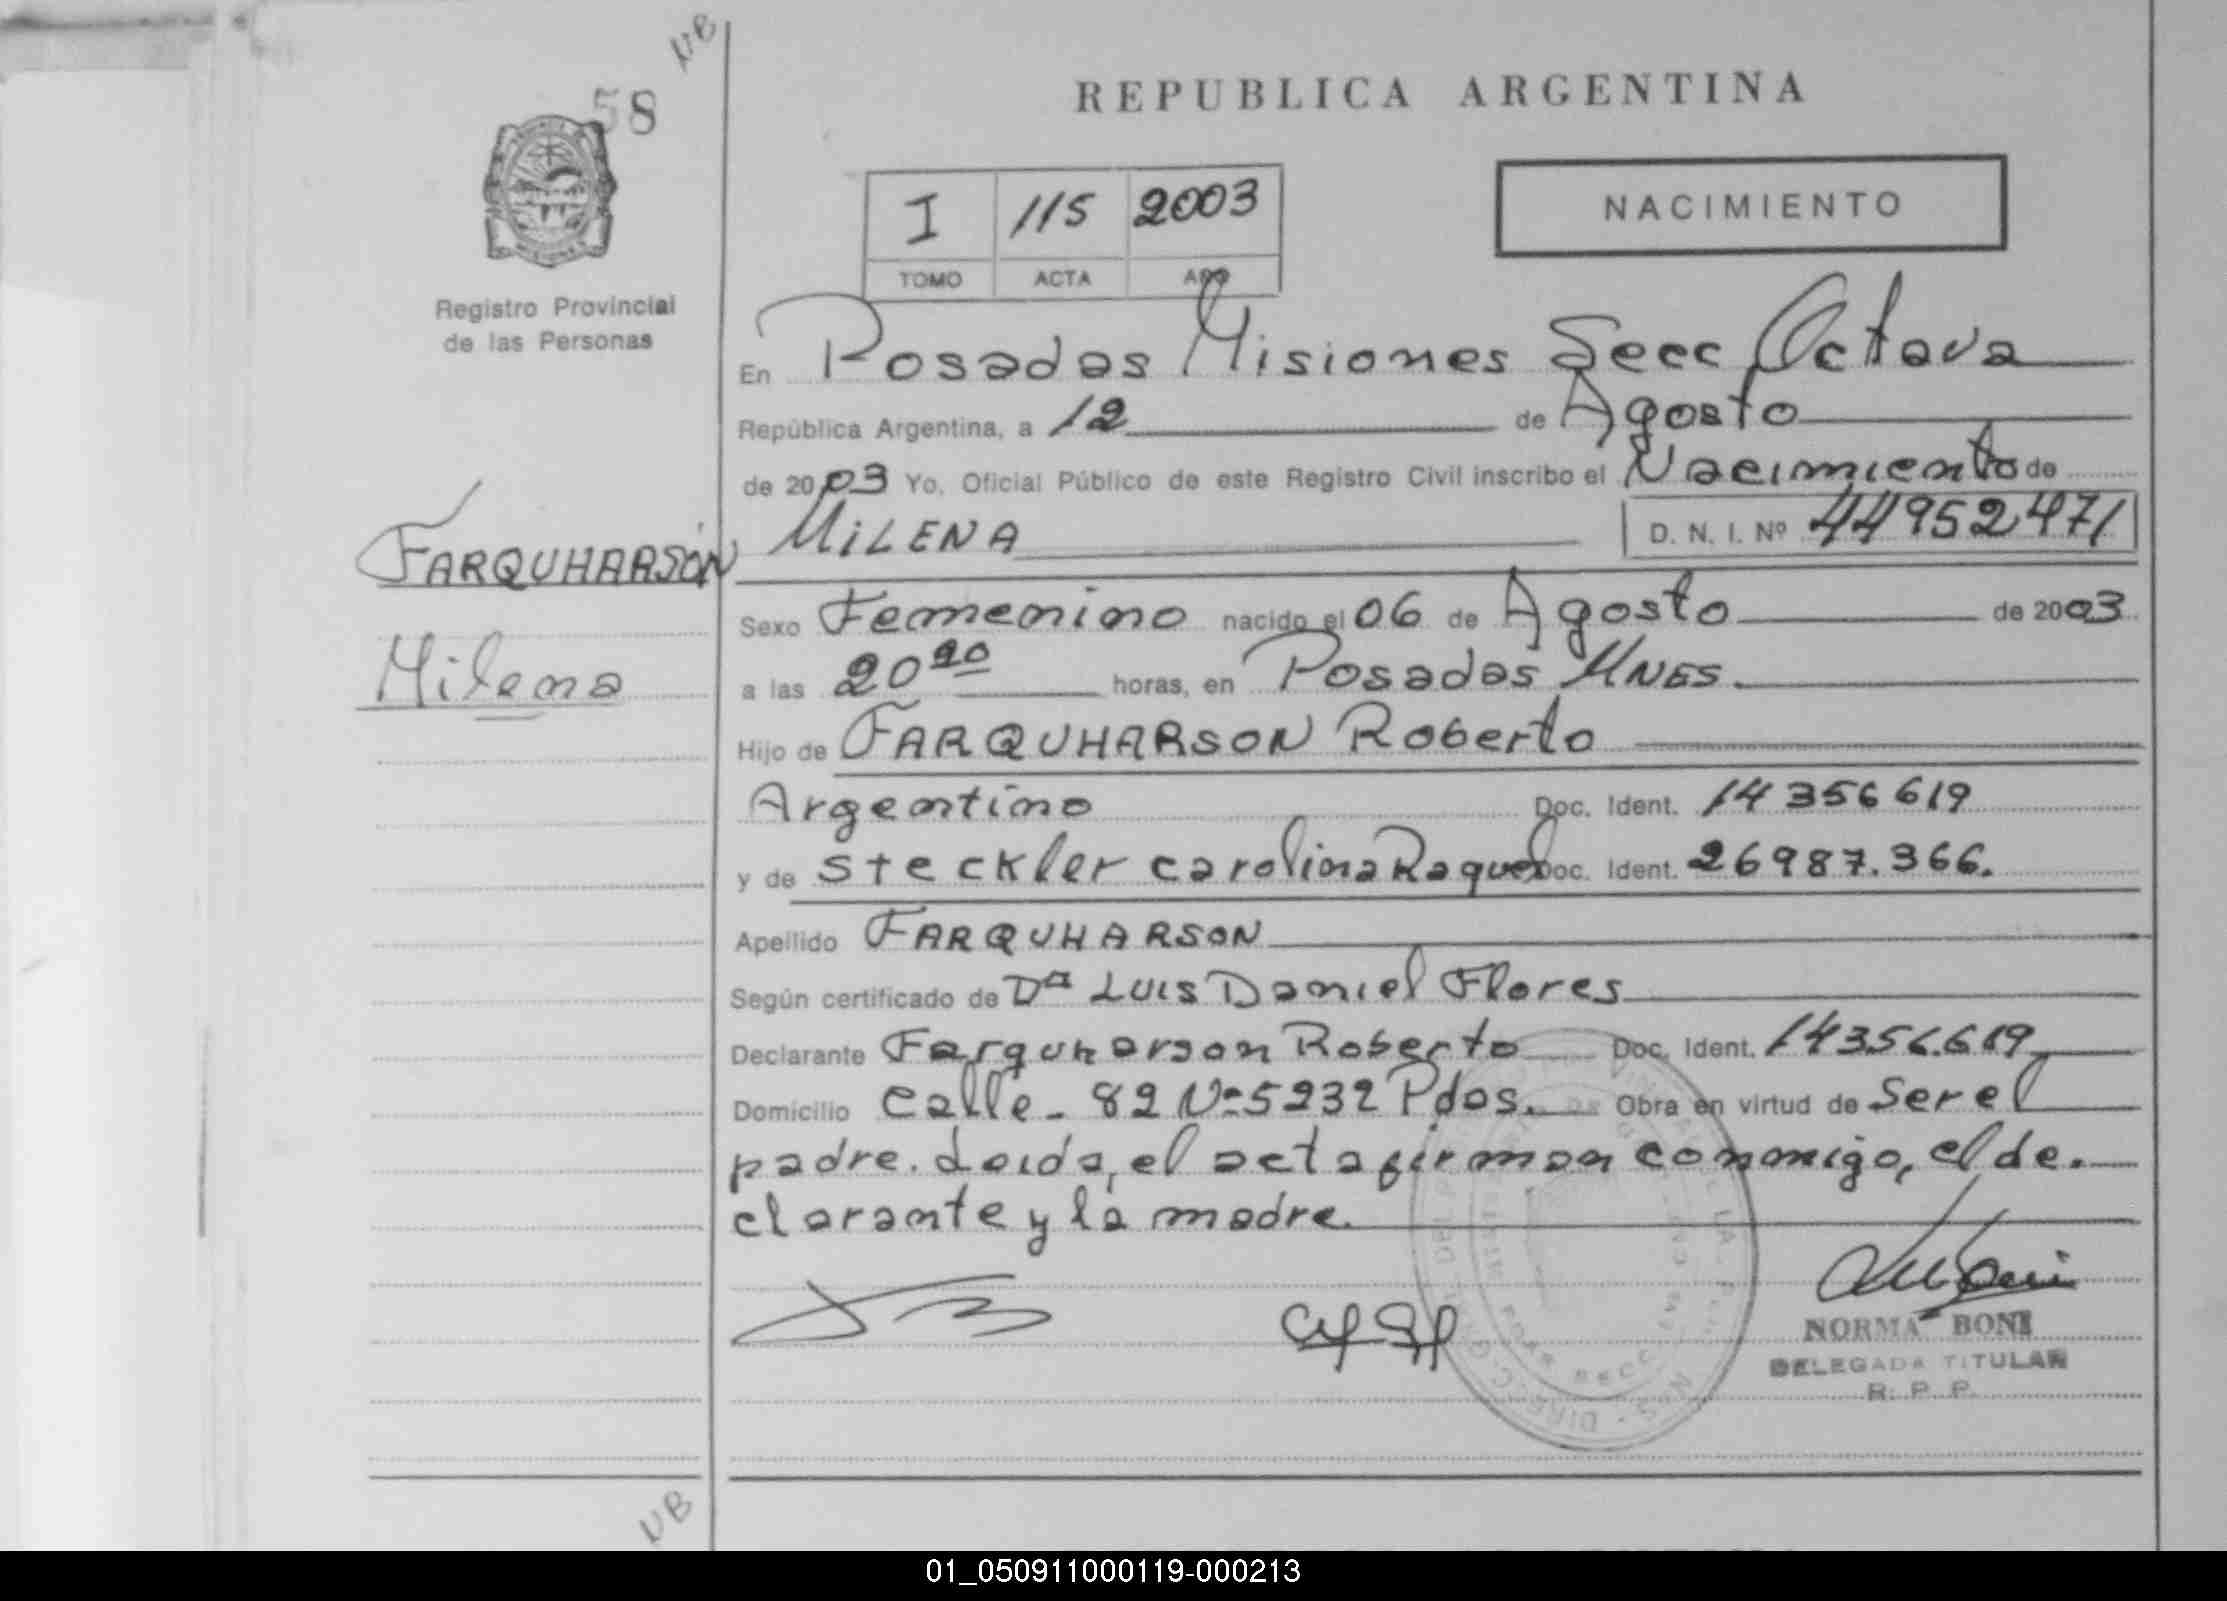 NB
58
REPUBLICA ARGENTINA
I 115 2003
TOMO ACTA AÑO
NACIMIENTO
Registro Provincial
de las Personas
En Posadas Misiones Secc Octava
República Argentina, a 12 de Agosto
de 2003 Yo, Oficial Público de este Registro Civil inscribo el Nacimiento de
MiLENA D. N. I. Nº 44952471
FARQUHARSON
Milena
Sexo Femenino nacido el 06 de Agosto de 2003
a las 20 20 horas, en Posadas MNES.
Hijo de FARQUHARSON Roberto
Argentino Doc. Ident. 14 356 619
y de Steckler Carolina Raquel Doc. Ident. 26987.366.
Apellido FARQUHARSON
Según certificado de Dª LUIS Daniel Flores
Declarante Farquharson Roberto Doc. Ident. 14356.619
Domicilio Calle - 82 Nº 5232 Pdas. Obra en virtud de Ser el
padre. Leída, el acta firman conmigo, el de.
clarante y la madre.
NORMA BONI
DELEGADA TITULAR
R. P. P.
NB
01_050911000119-000213